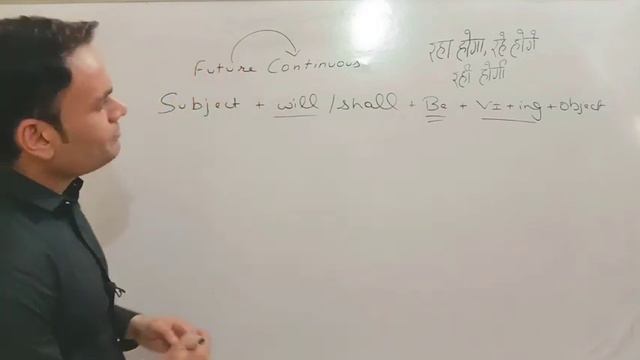 Future Continuous
रहा होगा, रहे होगे
रही होगी
Subject + will / shall + Be + VI + ing + object